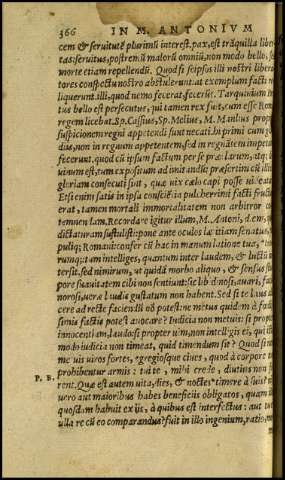 366 IN M. ANTONIVM
cem & seruitutē plurimū interest. pax, est trāquilla liber
tas: seruitus, postremū malorū omniū, non modo bello, sed
morte etiam repellendū. Quod si seipsos illi nostri libera
tores conspectu nostro abstulerunt: at exemplum facti re
liquerunt. illi, quod nemo fecerat, fecerūt. Tarquinium
tus bello est persecutus, qui tamen rex fuit, cum esse Romæ
regem licebat. Sp. Cassius, Sp. Melius, M. Manlius propter
suspicionem regni appetendi sunt necati. hi primi cum gla
dijs, non in regnum appetentem, sed in regnātem impetum
fecerunt. quod cū ipsum factum per se præclarum, atq;
uinum est, tum expositum ad imitandū: præsertim cū illi
gloriam consecuti sint, quæ uix cælo capi posse uideatur
Etsi enim satis in ipsa consciētia pulcherrimi facti fructus
erat, tamen mortali immortalitatem non arbitror
temnendam. Recordare igitur illum, M. Antoni, diem, quo
dictaturam sustulisti: pone ante oculos lætitiam senatus,
puliq; Romani: confer cū hac immani latione tua,
rumq;: tam intelliges, quantum inter laudem, & lucrū in
tersit. sed nimirum, ut quidā morbo aliquo, & sensus stu
pore suauitatem cibi non sentiunt: sic libidinosi, auari,
norosi, uera laudis gustatum non habent. Sed si te laus
cere ad recte faciendū nō potest: ne metus quidem à fœdis
simis factis potest auocare? Iudicia non metuis: si propter
innocentiam, laudo: si propter uim, non intelligis ei, qui isto
modo iudicia non timeat, quid timendum sit? Quod si non
metuis uiros fortes, egregiosque ciues, quod à corpore tuo
prohibentur armis: tui te, mihi crede, diutius non
P. B. rent. Quæ est autem uita, dies, & noctes timere à suis?
uero aut maioribus habes beneficiis obligatos, quam ille
quosdam habuit ex ijs, à quibus est interfectus: aut tu
ulla re cū eo comparandus? fuit in illo ingenium, ratio,